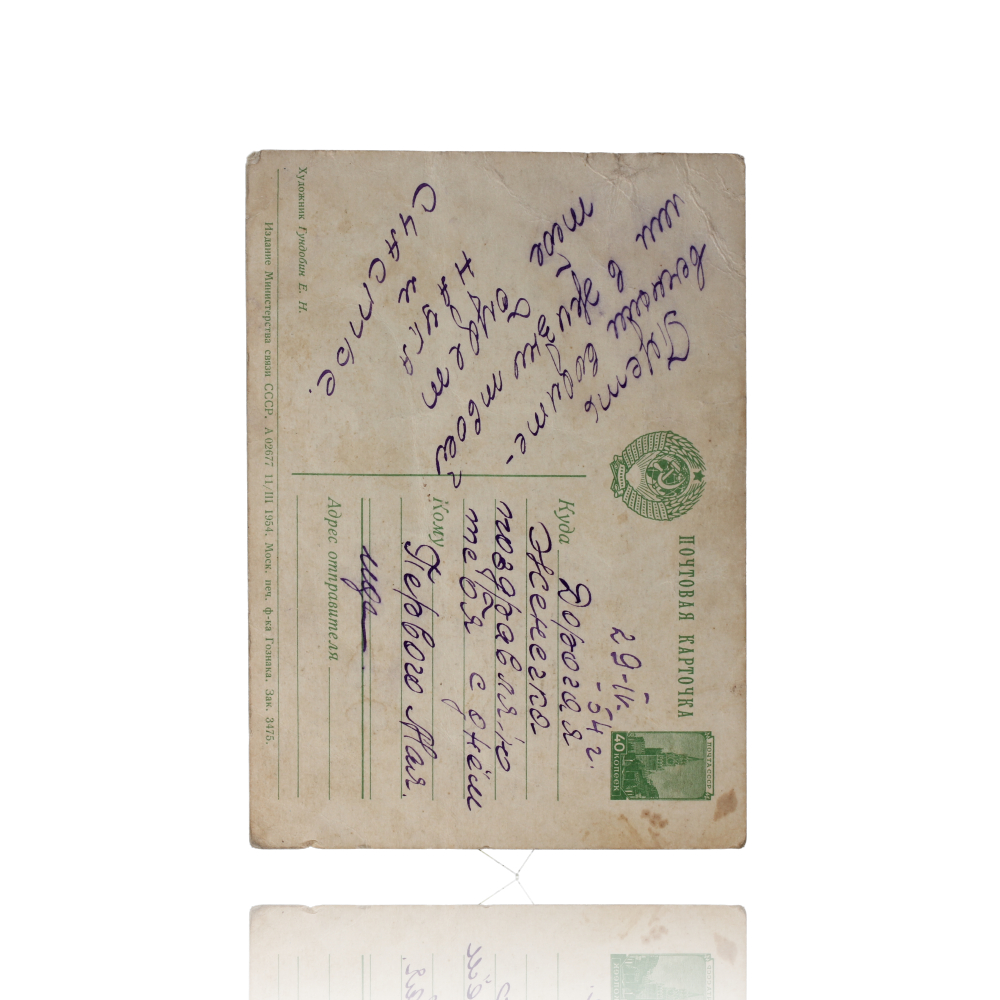 ПОЧТОВАЯ КАРТОЧКА
ПОЧТА СССР
40 КОПЕЕК
29-IV-
-54г.
Куда
Дорогая
Женечка
поздравляю
тебя с днём
Кому
Первого Мая.
Адрес отправителя
Пусть
вечными водите-
ли в жизни твоей
тебе будет
наука
и
счастье.
Художник Гундобин Е. Н.
Издание Министерства связи СССР. А 02677 11/III 1954. Моск. печ. ф-ка Гознака. Зак. 3475.